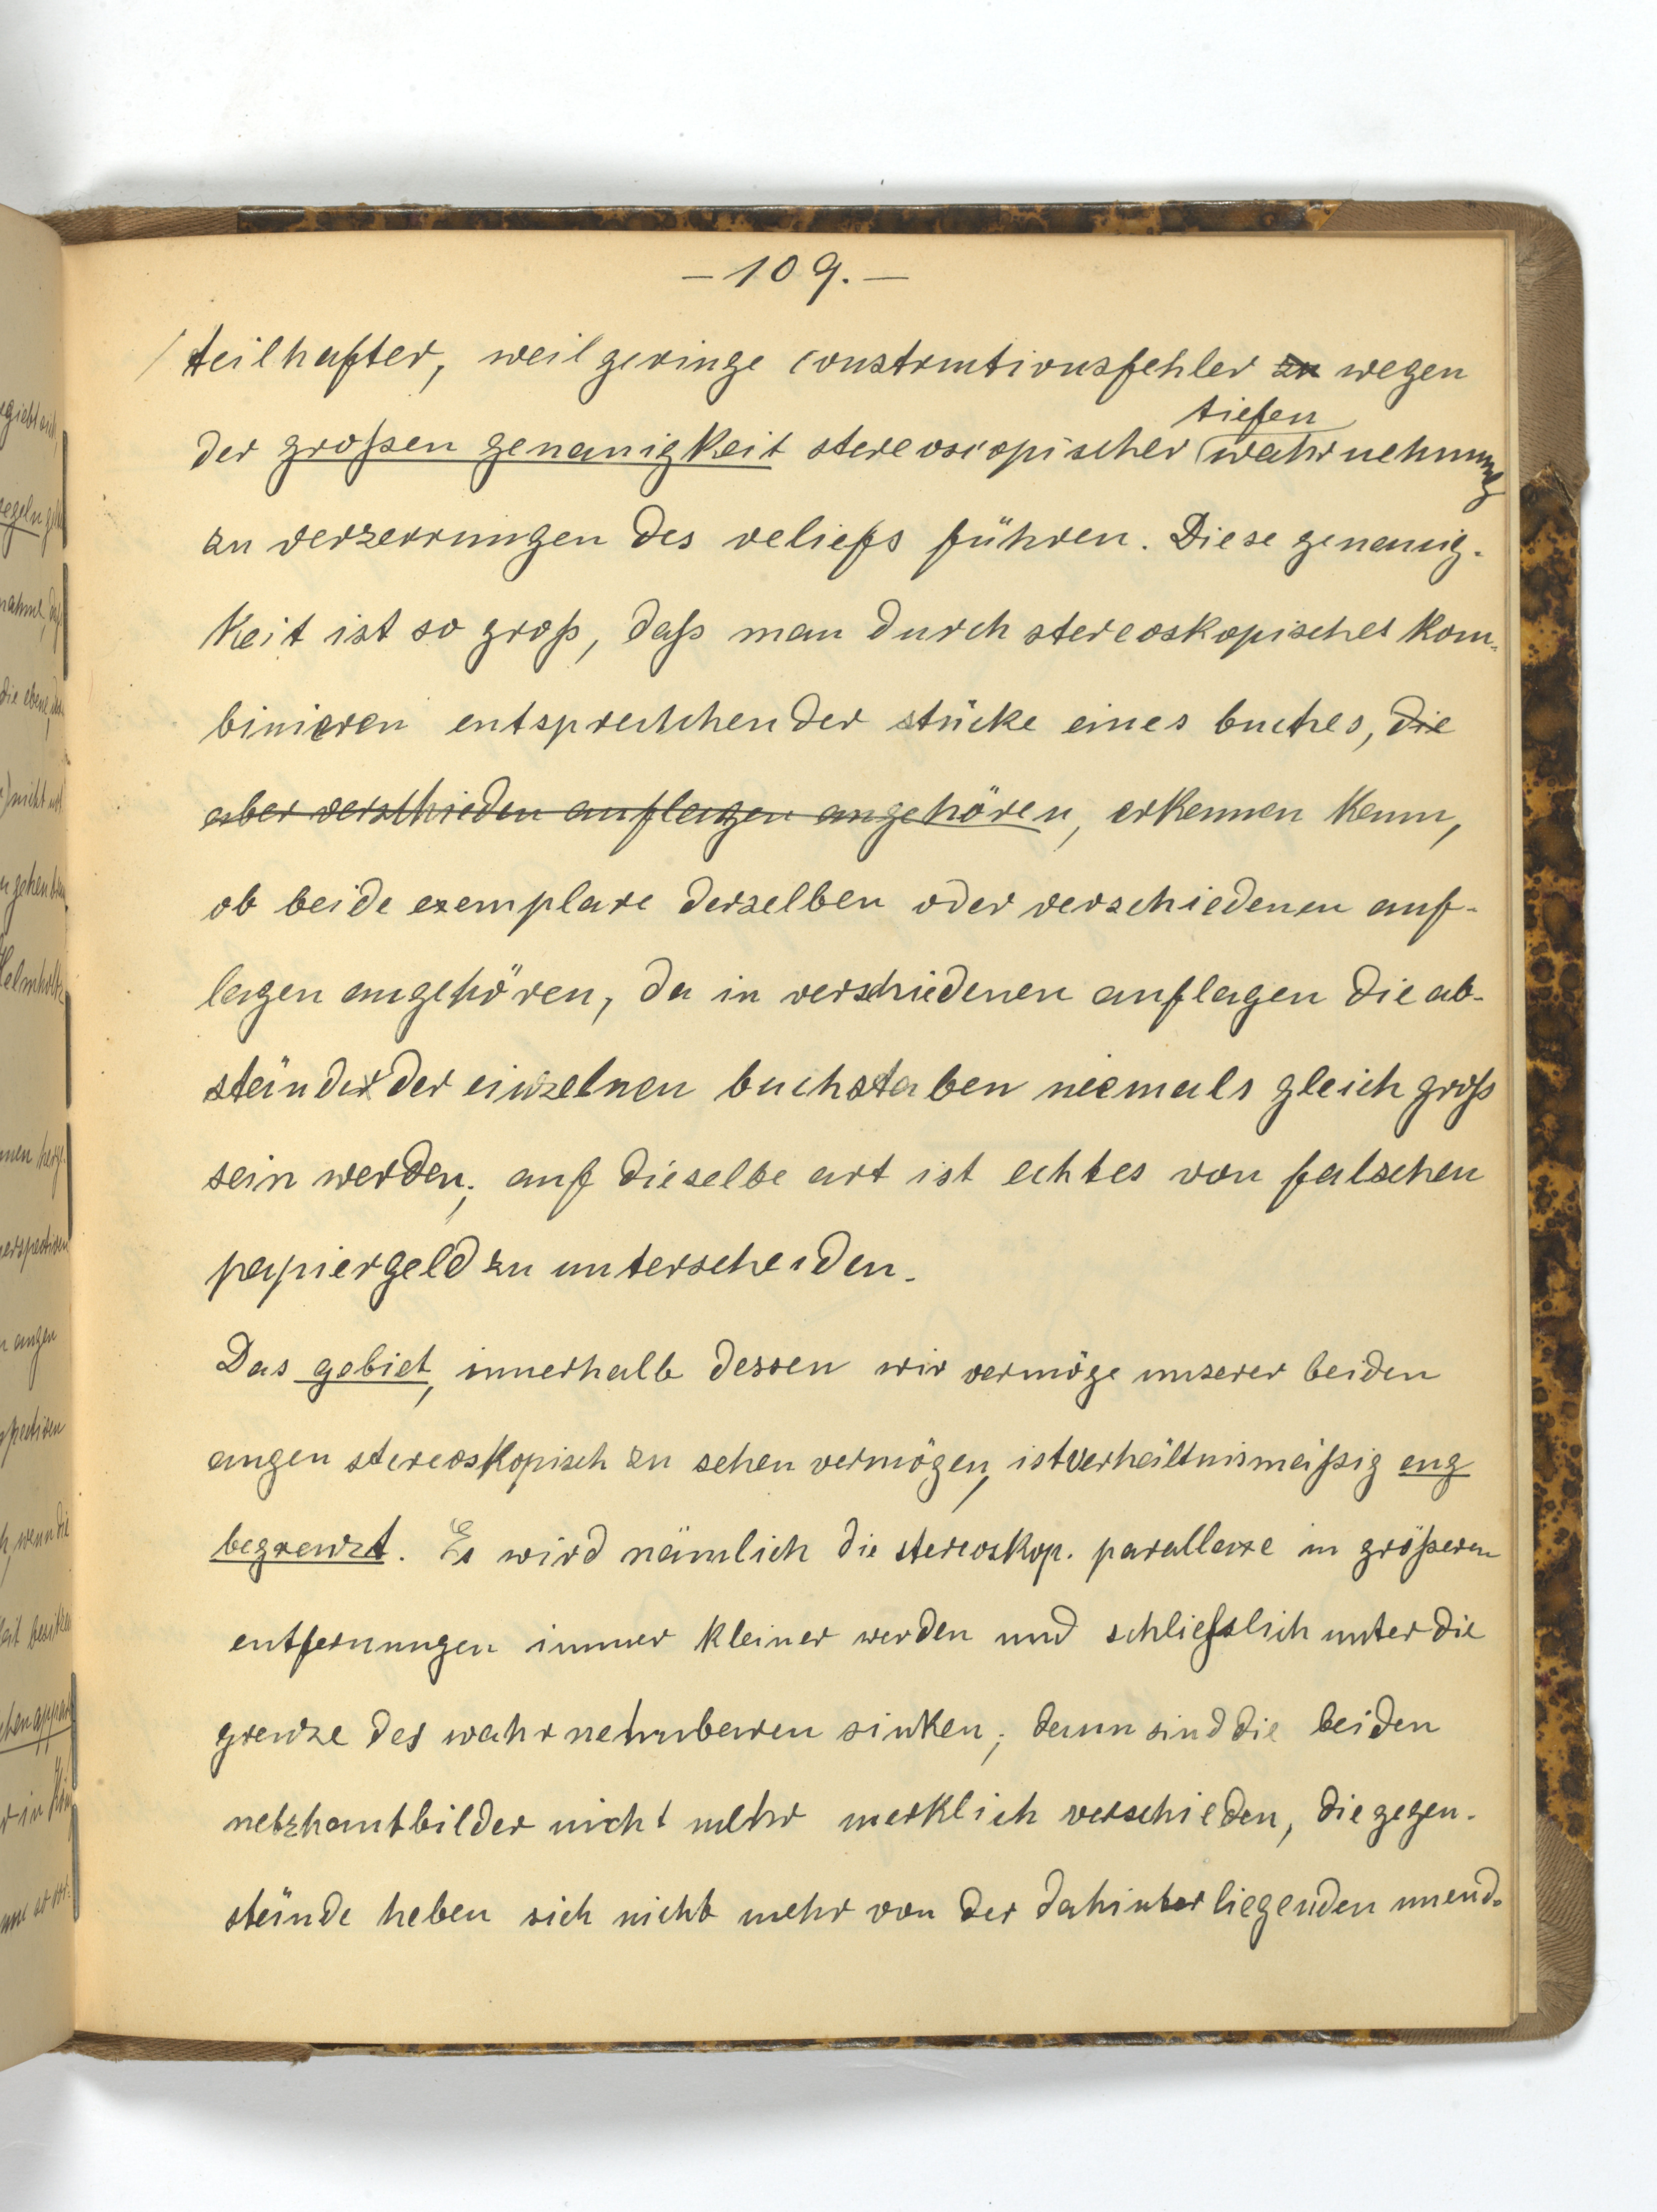 — 109. —
teilhafter, weil geringe constructionsfehler zu wegen
der großen genauigkeit stereoscopischer tiefenwahrnehmung
zu verzerrungen des reliefs führen. Diese genauig-
keit ist so groß, daß man durch stereoskopisches kom-
binieren entsprechender stücke eines buches, die
aber verschieden auflagen angehören, erkennen kann,
ob beide exemplare derselben oder verschiedenen auf-
lagen angehören, da in verschiedenen auflagen die ab-
stände der einzelnen buchstaben niemals gleich groß
sein werden; auf dieselbe art ist echtes von falschen
papiergeld zu unterscheiden.
Das gebiet, innerhalb dessen wir vermöge unserer beiden
augen stereoskopisch zu sehen vermögen, ist verhältnismäßig eng
begrenzt. Es wird nämlich die stereoskop. parallaxe in größeren
entfernungen immer kleiner werden und schließlich unter die
grenze des wahrnehmbaren sinken; dann sind die beiden
netzhautbilder nicht mehr merklich verschieden, die gegen-
stände heben sich nicht mehr von der dahinter liegenden unend-